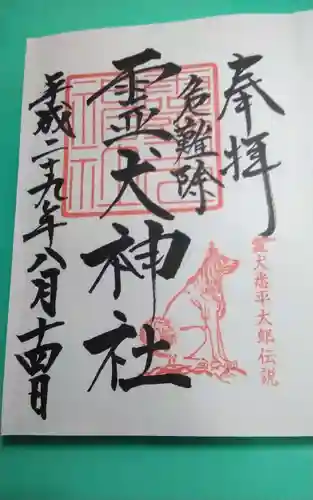 奉拝
危難除
霊犬神社
平成二十九年八月十四日
霊犬悉平太郎伝説